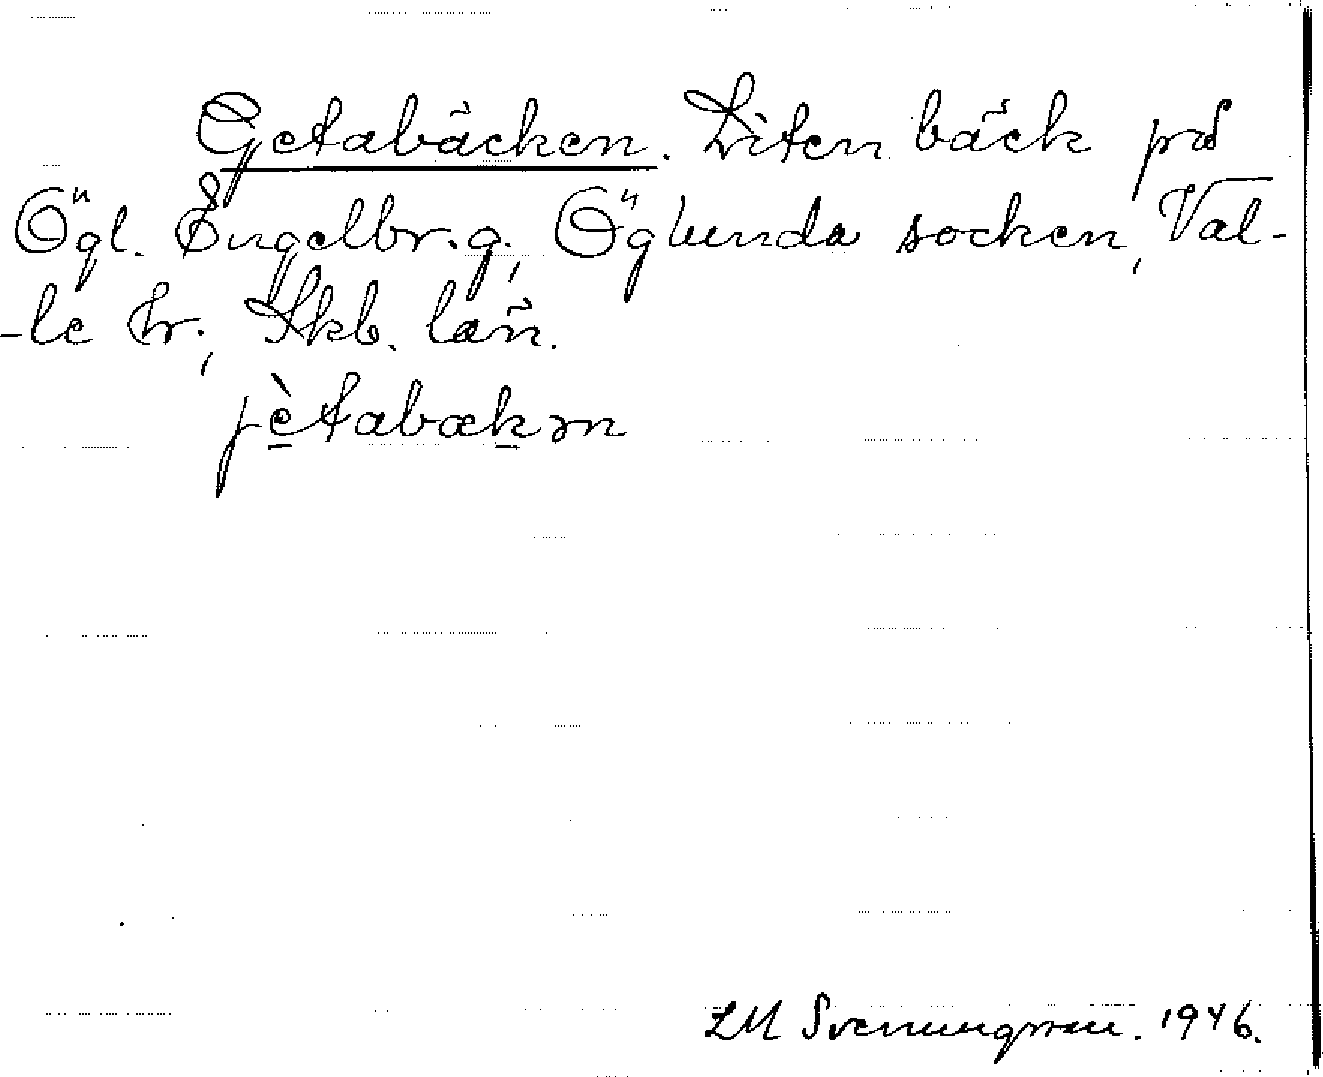 Getabäcken. Liten bäck på
Ögl. Engelbr.g., Öglunda socken, Val-
-le hr., Skb. län.
jètabækən
LM Svenungsson. 1946.